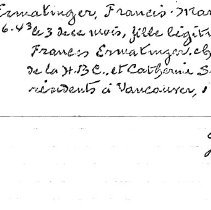 Ermatinger, Francis. Mar
6-43 le 3 de ce mois, fille légiti
Francis Ermatinger, ch
de la H.B.C., et Catherine S
résidents à Vancouver,